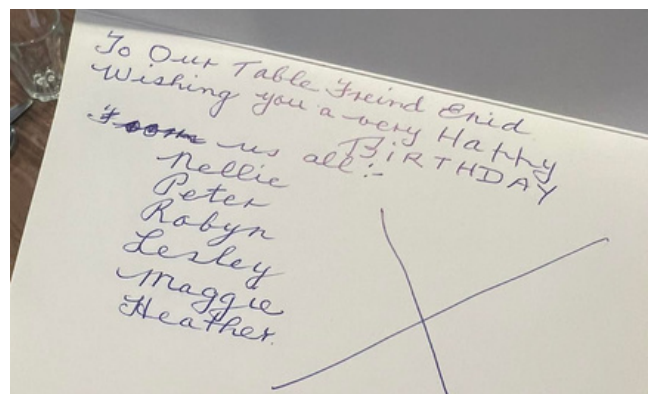 To Our Table Freind Enid
Wishing you a very Happy
BIRTHDAY
From us all:-
Nellie
Peter
Robyn
Lesley
Maggie
Heather.